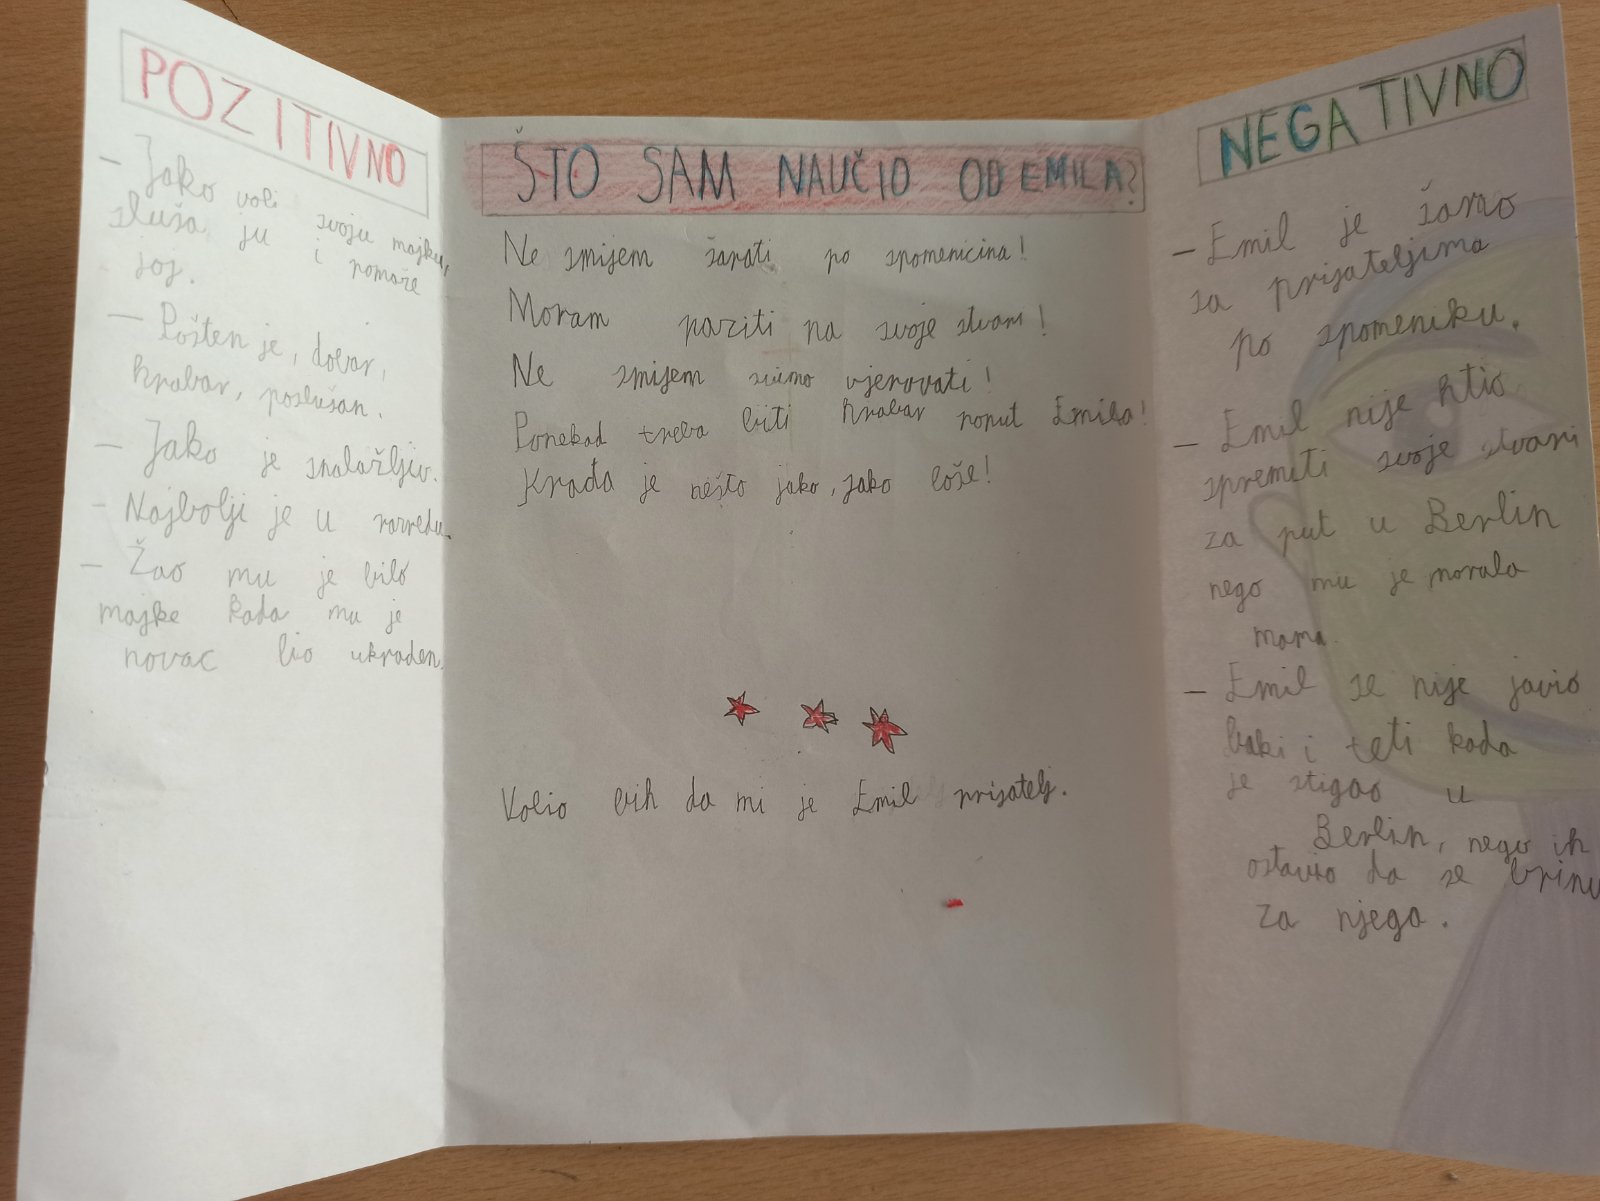 POZITIVNO
– Jako voli svoju majku,
sluša ju i pomaže
joj.
– Pošten je, dobar,
hrabar, poslušan.
– Jako je snalažljiv.
– Najbolji je u razredu.
– Žao mu je bilo
majke kada mu je
novac bio ukraden.
ŠTO SAM NAUČIO OD EMILA?
Ne smijem šarati po spomenicima!
Moram paziti na svoje stvari!
Ne smijem svima vjerovati!
Ponekad treba biti hrabar poput Emila!
Krađa je nešto jako, jako loše!
Volio bih da mi je Emil prijatelj.
NEGATIVNO
– Emil je šarao
sa prijateljima
po spomeniku.
– Emil nije htio
spremiti svoje stvari
za put u Berlin
nego mu je morala
mama.
– Emil se nije javio
baki i teti kada
je stigao u
Berlin, nego ih
ostavio da se brinu
za njega.